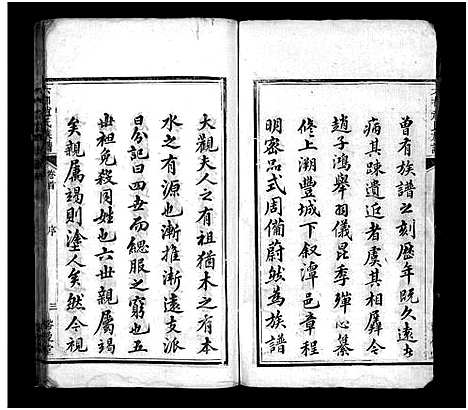 曾有族譜之刻歷年既久遠者
病其疎遺近者虞其相犀今
趙子鴻舉羽儀昆季殫心纂
修上溯豐城下叙潭邑章程
明密品式周備蔚然為族譜
大觀夫人之有祖猶木之有本
水之有源也漸推漸遠支派
日分記曰四世而緦服之窮也五
世祖免殺同姓也六世親屬竭
矣親屬竭則塗人矣然今視
卷首
序
三